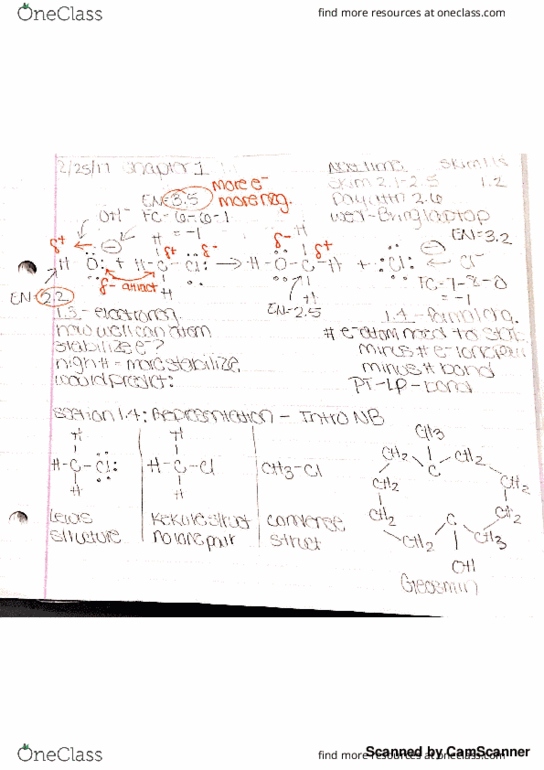 OneClass
find more resources at oneclass.com
2/25/17 Chapter 1
skim 2.1-2.5 1.2
more e⁻
EN=3.5 more neg.
2.6
OH⁻ FC-6-6-1
= -1
wed-Bring laptop
EN=3.2
δ⁺ H δ⁺ δ⁻ δ⁻ H δ⁺
H O: + H-C-Cl: → H-O-C-H + :Cl: ← Cl⁻
δ⁻ attract H
FC-7-8-0
= -1
EN=2.2
EN=2.5 H
1.3- electroneg.
how well can atom
stabilize e⁻?
high # - more stabilize
would predict:
1.4-
# e⁻ atom need to
minus # e⁻ lone pairs
minus # bond
PT-LP-bond
Section 1.4: Representation - Intro NB
H
H-C-Cl:
H
Lewis
structure
H
H-C-Cl
H
Kekule struct
no lone pair
CH3-Cl
struct
CH3
CH2 C CH2
CH2 CH2
CH2 C CH2
CH2 CH3
OH
Geosmin
OneClass
find more resources at oneclass.com
Scanned by CamScanner